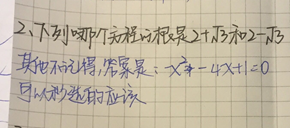 2、下列哪个方程的根是2+√3和2-√3
其他不记得,答案是:-x²-4x+1=0
可以秒选的应该